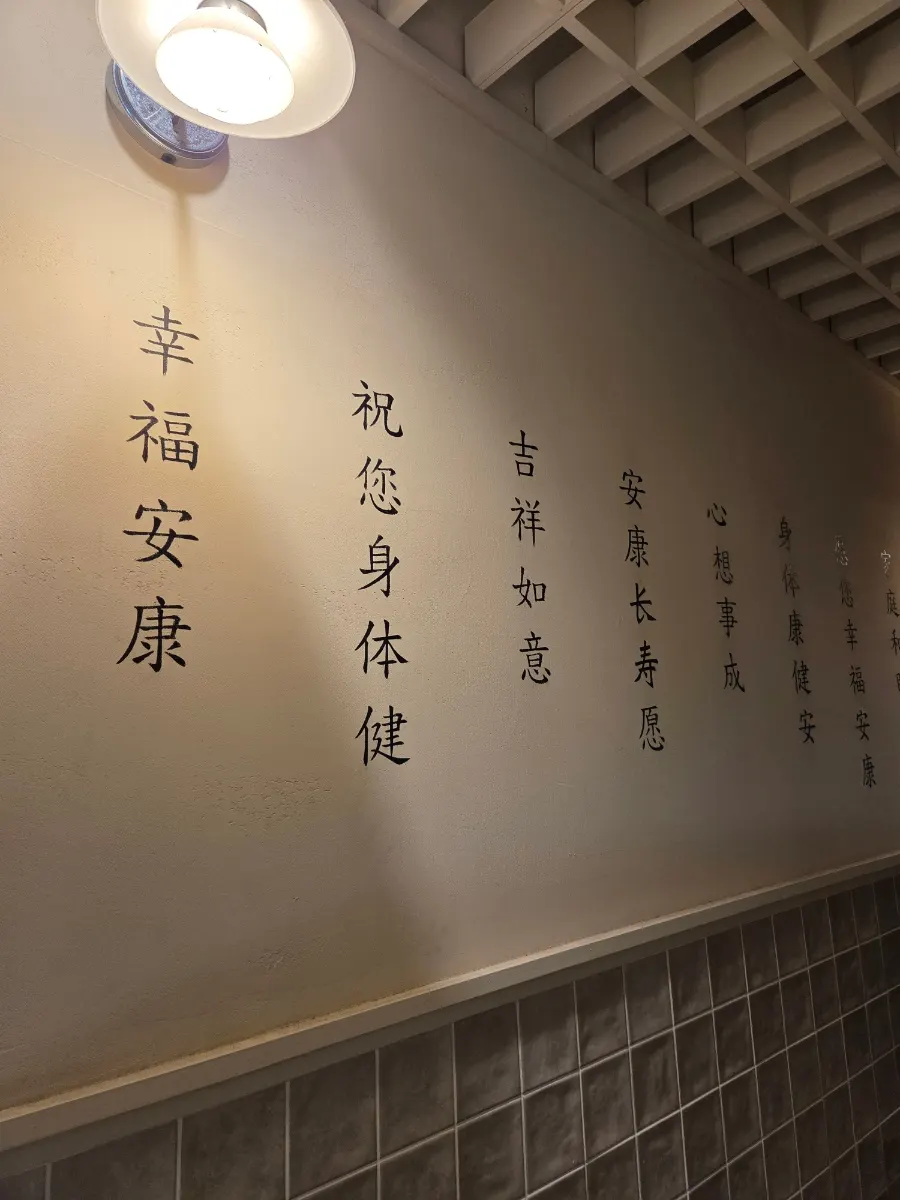 幸福安康
祝您身体健
吉祥如意
安康长寿愿
心想事成
身体康健安
您幸福安康
家庭和